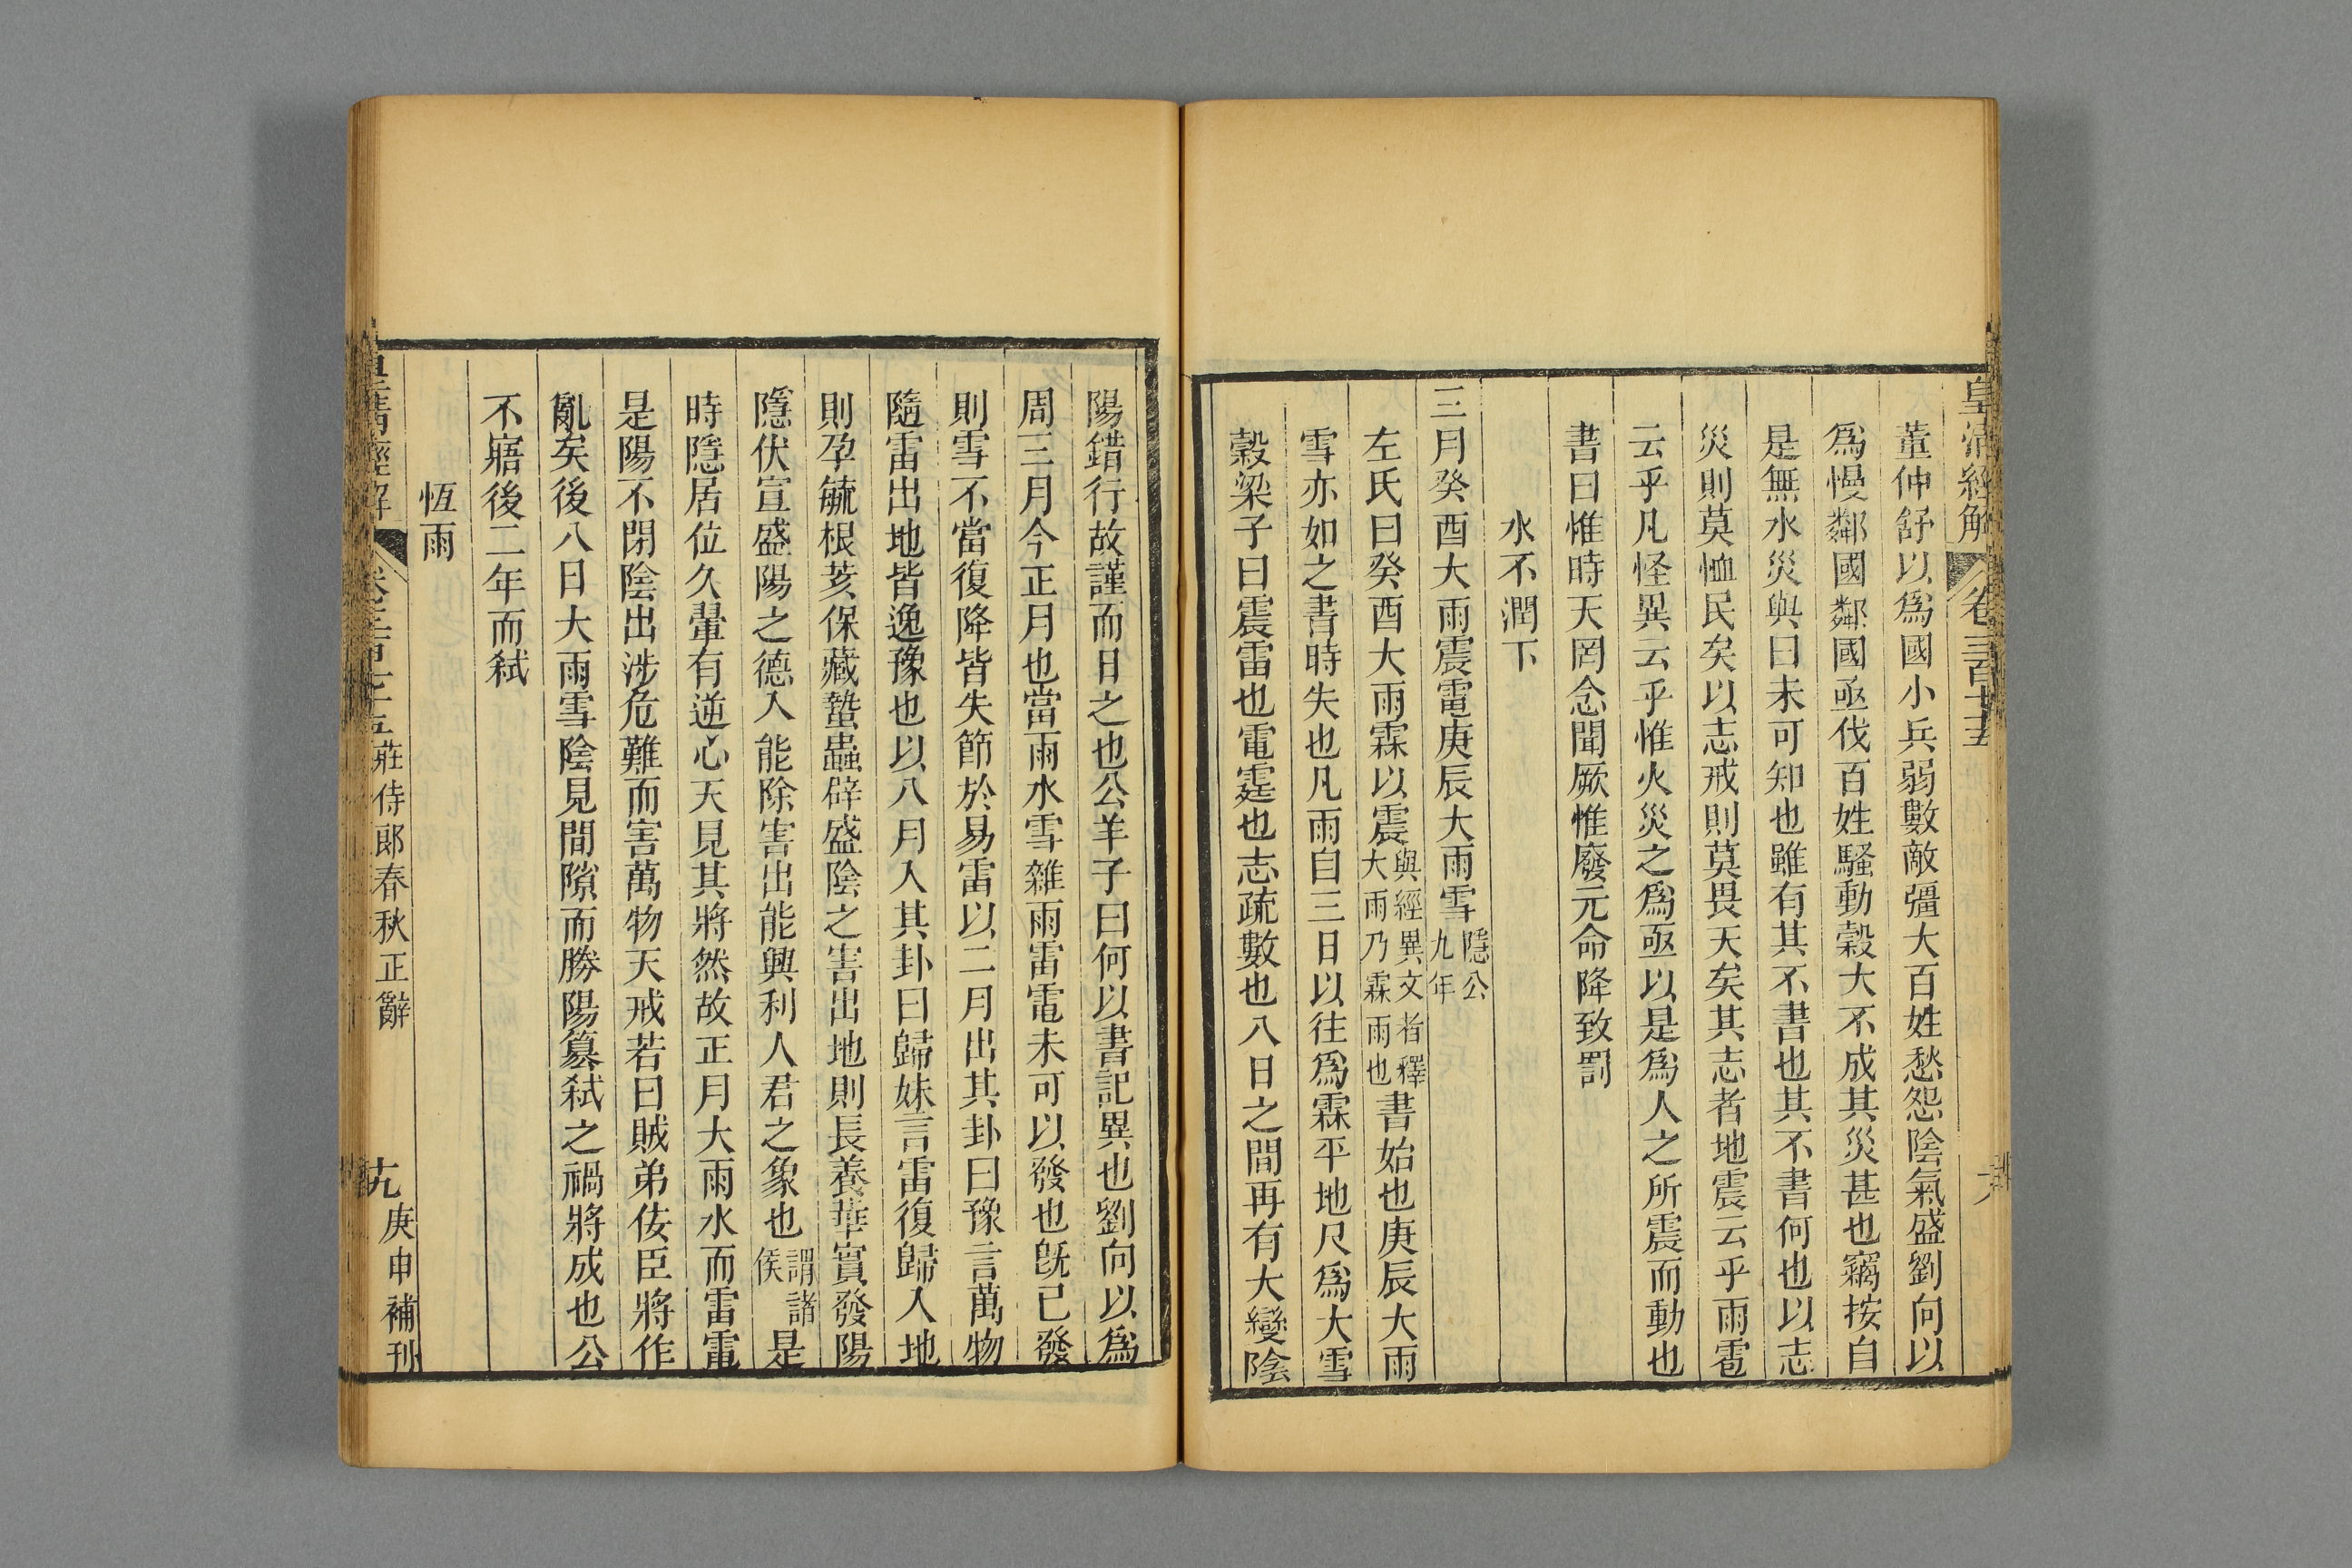 皇清經解
卷三百七十五
董仲舒以爲國小兵弱數敵彊大百姓愁怨陰氣盛劉向以
爲慢鄰國鄰國亟伐百姓騷動穀大不成其災甚也竊按自
是無水災與曰未可知也雖有其不書也其不書何也以志
災則莫恤民矣以志戒則莫畏天矣其志者地震云乎雨雹
云乎凡怪異云乎惟火災之爲亟以是爲人之所震而動也
書曰惟時天罔念聞厥惟廢元命降致罰
水不潤下
三月癸酉大雨震電庚辰大雨雪隱公九年
左氏曰癸酉大雨霖以震與經異文者釋大雨乃霖雨也書始也庚辰大雨
雪亦如之書時失也凡雨自三日以往爲霖平地尺爲大雪
穀梁子曰震雷也電霆也志疏數也八日之間再有大變陰
陽錯行故謹而日之也公羊子曰何以書記異也劉向以爲
周三月今正月也當雨水雪雜雨雷電未可以發也旣已發
則雪不當復降皆失節於易雷以二月出其卦曰豫言萬物
隨雷出地皆逸豫也以八月入其卦曰歸妹言雷復歸入地
則孕毓根荄保藏蟄蟲辟盛陰之害出地則長養華實發陽
隱伏宣盛陽之德入能除害出能興利人君之象也謂諸侯是
時隱居位久翬有逆心天見其將然故正月大雨水而雷電
是陽不閉陰出涉危難而害萬物天戒若曰賊弟佞臣將作
亂矣後八日大雨雪陰見間隙而勝陽篡弒之禍將成也公
不寤後二年而弒
恆雨
皇清經解
卷三百七十五
莊侍郎春秋正辭
九
庚申補刊